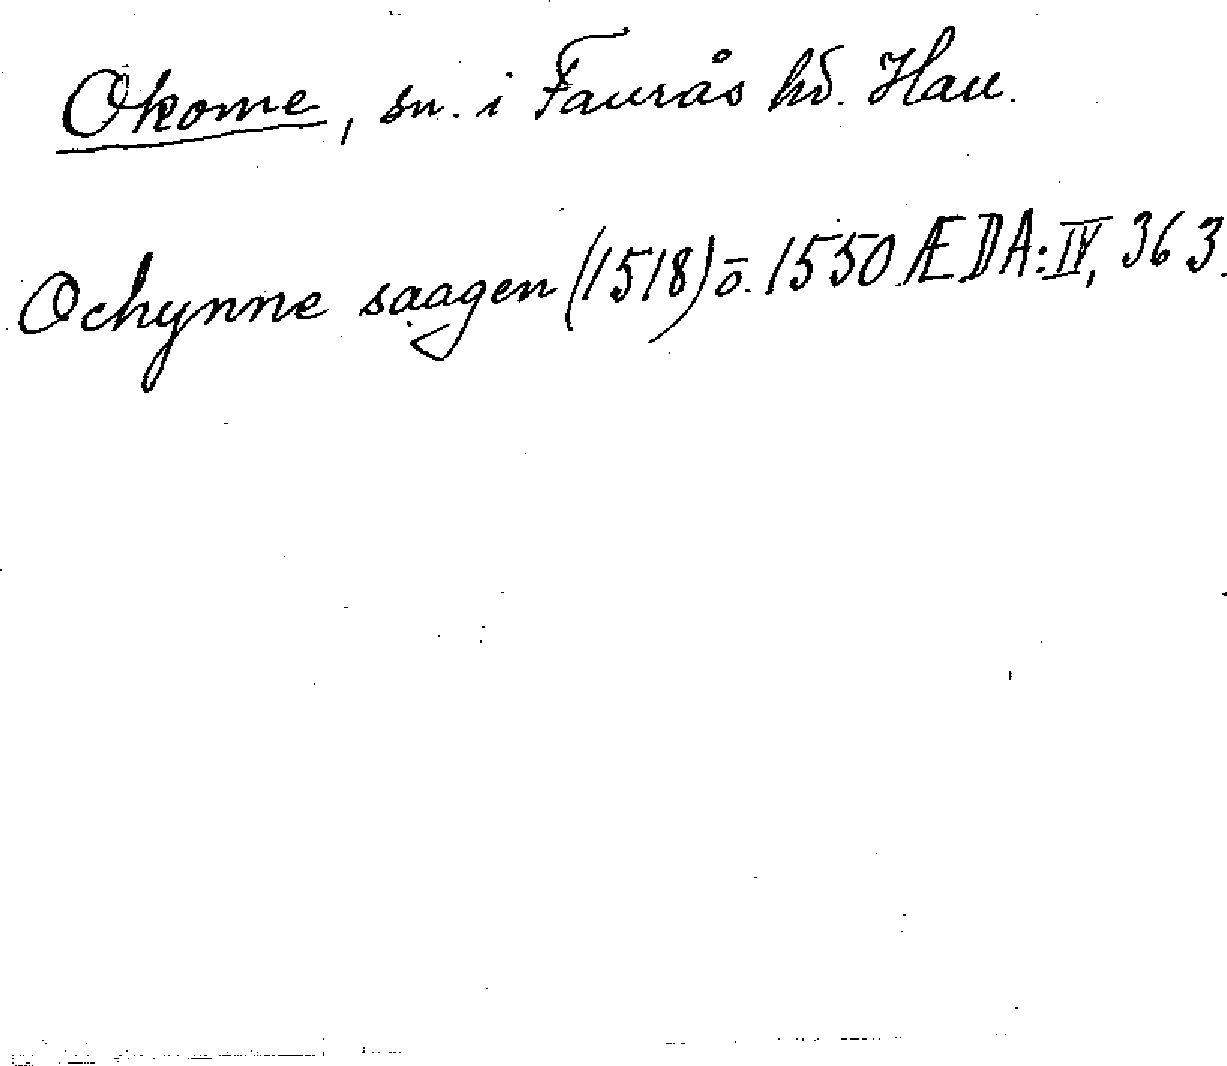 Okome, sn. i Faurås hd. Hall.
Ochynne saagen (1518) ö. 1550 ÆDA: IV, 363.